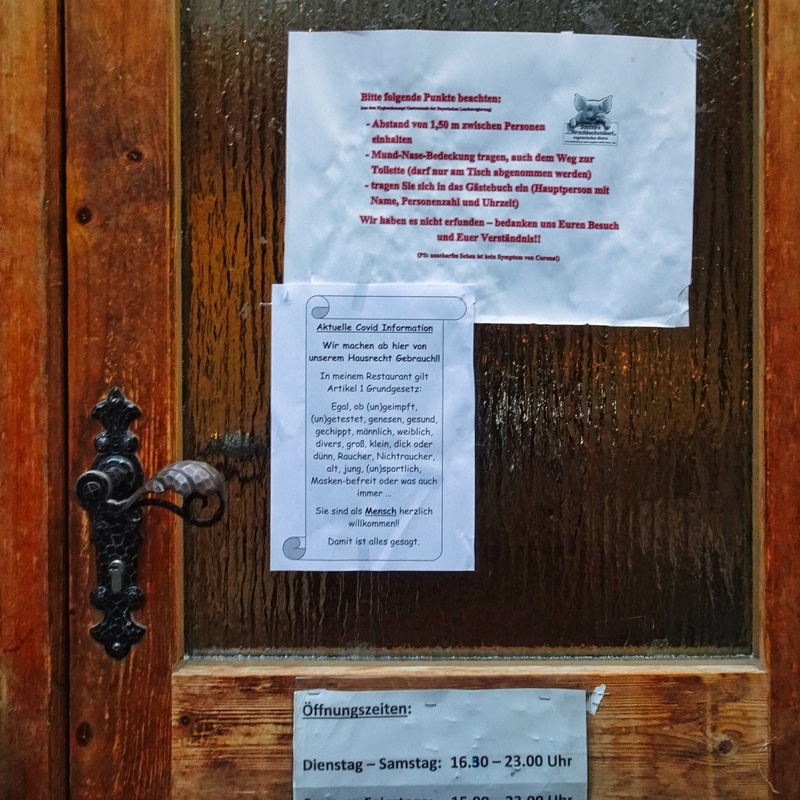 Bitte folgende Punkte beachten:
- Abstand von 1,50 m zwischen Personen
einhalten
- Mund-Nase-Bedeckung tragen, auch dem Weg zur
Toilette (darf nur am Tisch abgenommen werden)
- tragen Sie sich in das Gästebuch ein (Hauptperson mit
Name, Personenzahl und Uhrzeit)
Wir haben es nicht erfunden – bedanken uns Euren Besuch
und Euer Verständnis!!
(PS: unscharfes Sehen ist kein Symptom von Corona!)
Aktuelle Covid Information
Wir machen ab hier von
unserem Hausrecht Gebrauch!!
In meinem Restaurant gilt
Artikel 1 Grundgesetz:
Egal, ob (un)geimpft,
(un)getestet, genesen, gesund,
gechippt, männlich, weiblich,
divers, groß, klein, dick oder
dünn, Raucher, Nichtraucher,
alt, jung, (un)sportlich,
Masken-befreit oder was auch
immer ...
Sie sind als Mensch herzlich
willkommen!!
Damit ist alles gesagt.
Öffnungszeiten:
Dienstag – Samstag: 16.30 – 23.00 Uhr